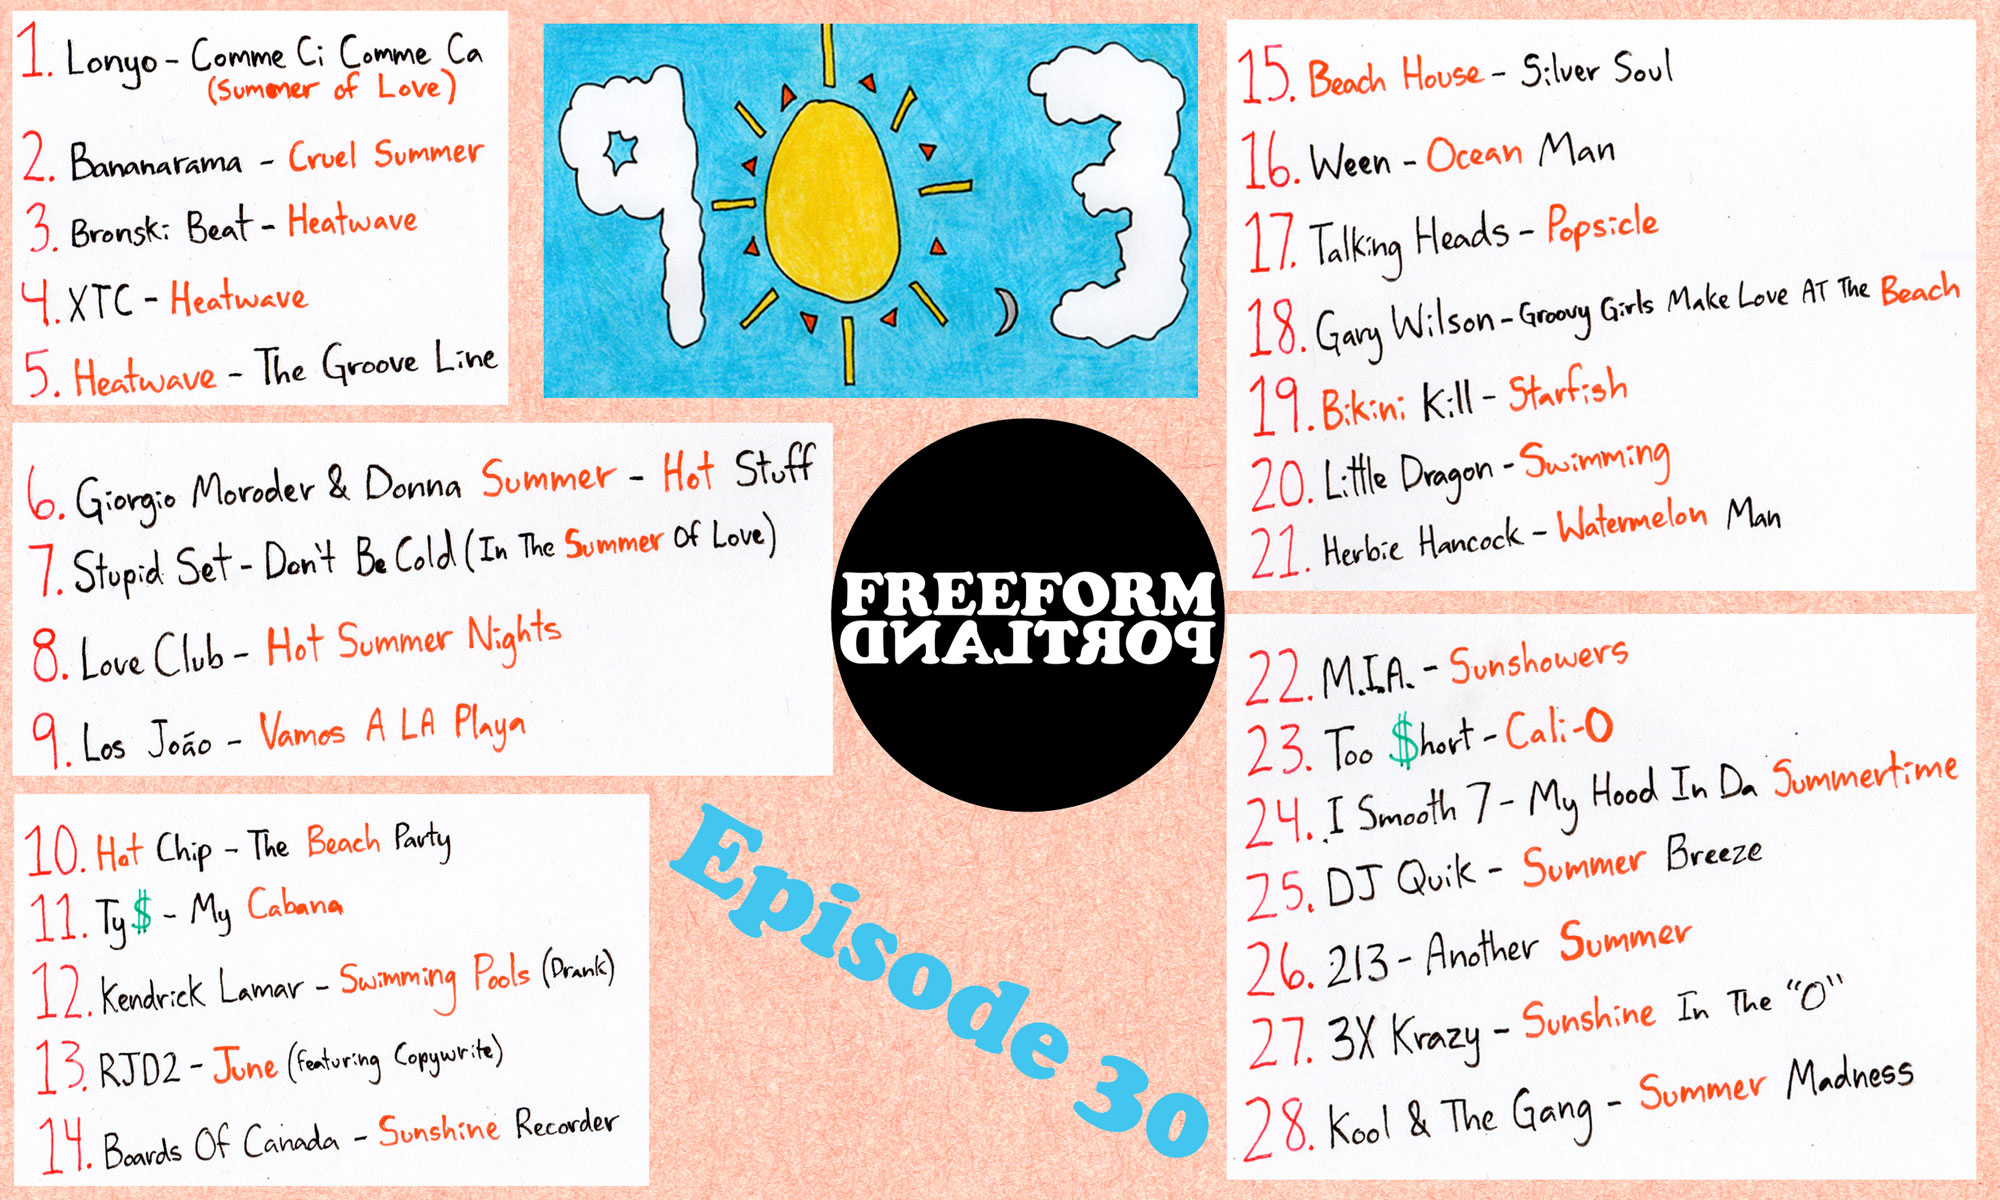 1. Lonyo - Comme Ci Comme Ca
(Summer of Love)
2. Bananarama - Cruel Summer
3. Bronski Beat - Heatwave
4. XTC - Heatwave
5. Heatwave - The Groove Line
6. Giorgio Moroder & Donna Summer - Hot Stuff
7. Stupid Set - Don't Be Cold (In The Summer Of Love)
8. Love Club - Hot Summer Nights
9. Los João - Vamos A LA Playa
10. Hot Chip - The Beach Party
11. Ty$ - My Cabana
12. Kendrick Lamar - Swimming Pools (Drank)
13. RJD2 - June (featuring Copywrite)
14. Boards Of Canada - Sunshine Recorder
9 3
FREEFORM
PORTLAND
Episode 30
15. Beach House - Silver Soul
16. Ween - Ocean Man
17. Talking Heads - Popsicle
18. Gary Wilson - Groovy Girls Make Love AT The Beach
19. Bikini Kill - Starfish
20. Little Dragon - Swimming
21. Herbie Hancock - Watermelon Man
22. M.I.A. - Sunshowers
23. Too $hort - Cali-O
24. I Smooth 7 - My Hood In Da Summertime
25. DJ Quik - Summer Breeze
26. 213 - Another Summer
27. 3X Krazy - Sunshine In The "O"
28. Kool & The Gang - Summer Madness